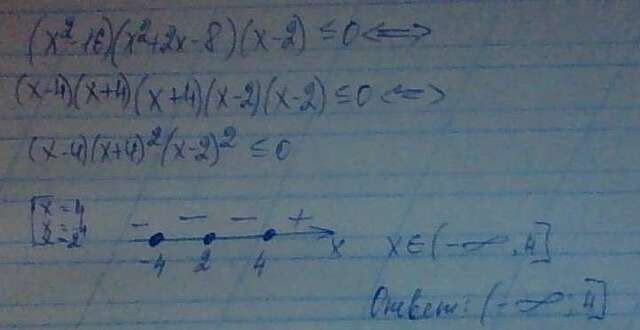 (x²-16)(x²+2x-8)(x-2) ≤ 0 <=>
(x-4)(x+4)(x+4)(x-2)(x-2) ≤ 0 <=>
(x-4)(x+4)²(x-2)² ≤ 0
[x = 4
x = -4
x = 2
- - - +
-4 2 4 x
x∈(-∞;4]
Ответ: (-∞;4]